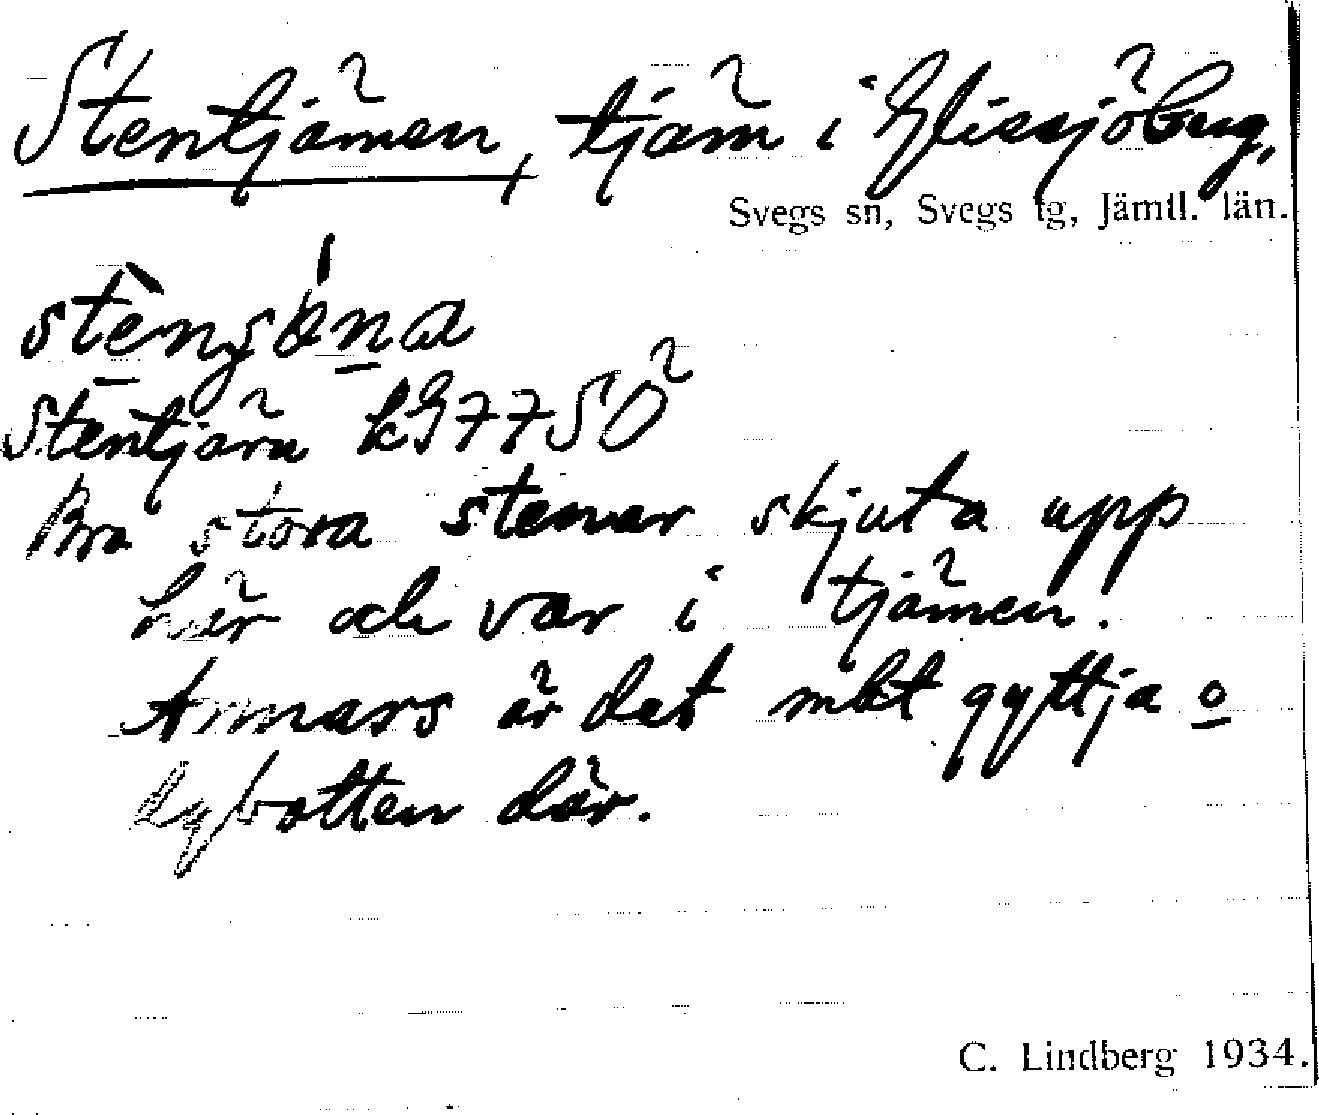 Stentjärnen, tjärn i Glissjöberg,
Svegs sn, Svegs tg, Jämtl. län.
Stentjärn kG 77 SÖ
Bra stora stenar skjuta upp
här och var i tjärnen.
Annars är det mkt gyttja o
dybotten där.
C. Lindberg 1934.